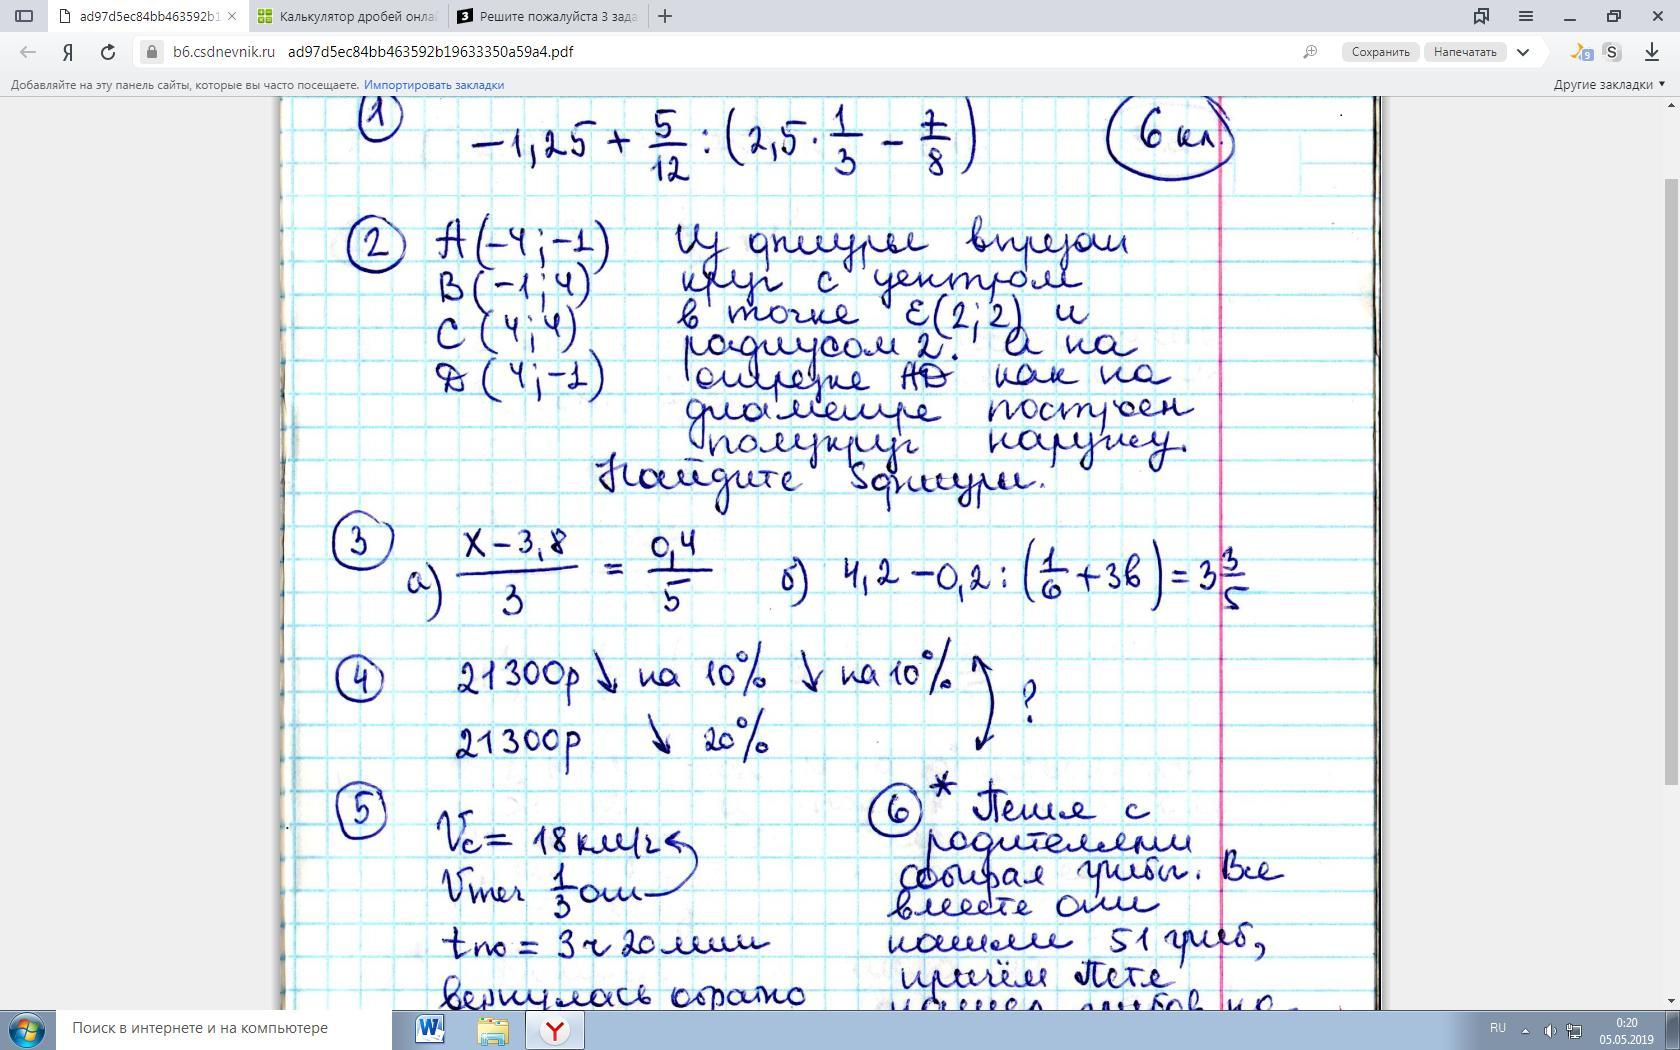 ad97d5ec84bb463592b1
Калькулятор дробей онла
Решите пожалуйста 3 зада
b6.csdnevnik.ru ad97d5ec84bb463592b19633350a59a4.pdf
Сохранить
Напечатать
9
S
Добавляйте на эту панель сайты, которые вы часто посещаете. Импортировать закладки
Другие закладки
1 −1,25 + 5/12 : (2,5 · 1/3 − 7/8) 6 кл.
2 A(−4; −1) Из фигуры вырезан
B(−1; 4) круг с центром
C(4; 4) в точке E(2; 2) и
D(4; −1) радиусом 2. А на
отрезке AD как на
диаметре построен
полукруг наружу.
Найдите Sфигуры.
3 а) x − 3,8 / 3 = 0,4 / 5 б) 4,2 − 0,2 : (1/6 + 3в) = 3 3/5
4 21300р ↘ на 10% ↘ на 10% ?
21300р ↘ 20%
5 Vс = 18 км/ч
Vтеч 1/3 от
tпо = 3 ч 20 мин
вернулась обратно
6* Петя с
родителями
собирал грибы. Все
вместе они
нашли 51 гриб,
причём Петя
нашёл грибов на-
Поиск в интернете и на компьютере
RU
0:20
05.05.2019